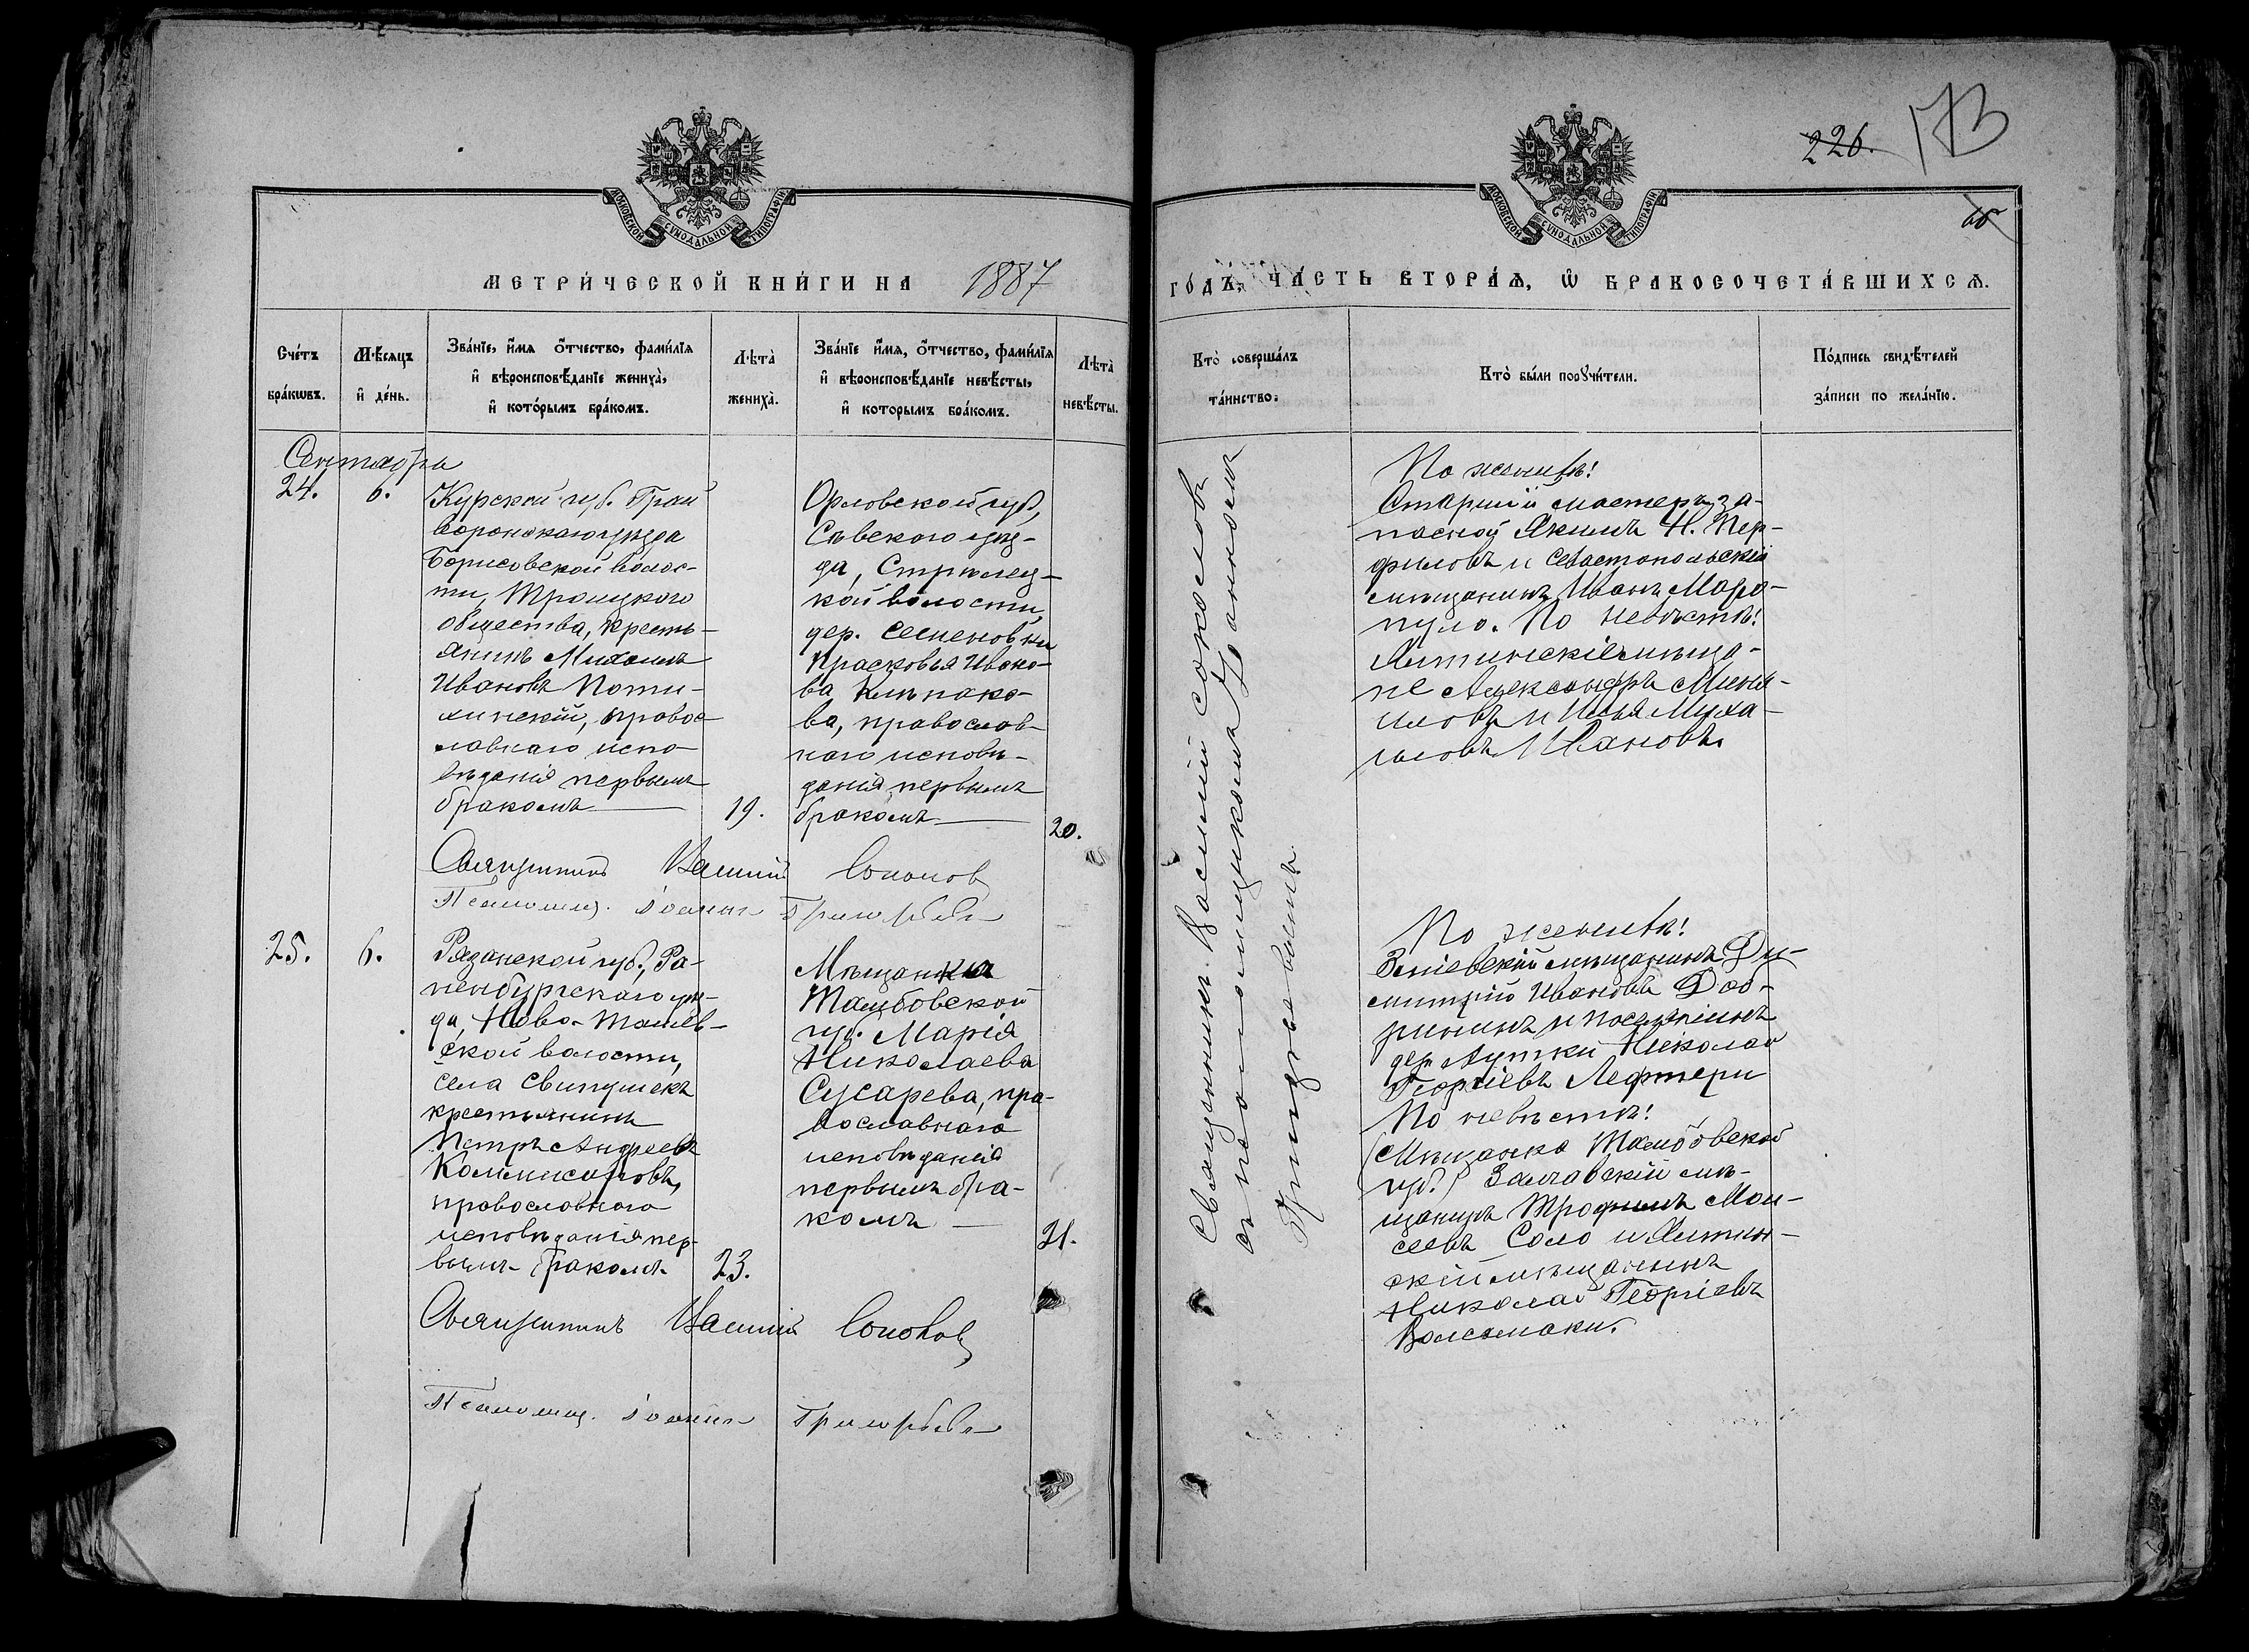 226.
173
МОСКОВСКОЙ СѴНОДАЛЬНОЙ ТИПОГРАФІИ
МОСКОВСКОЙ СѴНОДАЛЬНОЙ ТИПОГРАФІИ
МЕТРИ́ЧЕСКОЙ КНИ́ГИ НА 1887
ГО́ДЪ, ЧА́СТЬ ВТОРА́Ѧ, Ѡ҆ БРАКОСОЧЕТА́ВШИХСѦ.
Сче́тъ бра́кѡвъ.
Мѣ́сѧцъ и҆ де́нь.
Зва́нїе, и҆́мѧ ѻ҆́тчество, фами́лїѧ и҆ вѣроисповѣ́данїе жениха̀, и҆ кото́рымъ бра́комъ.
Лѣта̀ жениха̀.
Зва́нїе и҆́мѧ, ѻ҆́тчество, фами́лїѧ и҆ вѣроисповѣ́данїе невѣ́сты, и҆ которымъ бра́комъ.
Лѣта̀ невѣ́сты.
Кто̀ соверша́лъ та́инство:
Кто̀ бы́ли порꙋчи́тели.
По́дпись свидѣ́телей за́писи по жела́нїю.
Сентября
24. 6.
Курской губ. Грай
воронскаго уѣзда
Борисовской волос-
ти, Троицкаго
общества, кресть-
янинъ Михаилъ
Ивановъ
правос
лавнаго испо
вѣданія первымъ
бракомъ
19.
Орловской губ,
Сѣвскаго уѣз-
да, Стрѣлец-
кой волости,
дер. Семеновки
Прасковья Ивано-
ва
ва, православ-
наго исповѣ-
данія, первымъ
бракомъ
20.
Священникъ Василій Соколовъ
съ псаломщикомъ Іоанномъ
Григорьевымъ.
По женихѣ:
Старшій мастеръ за-
пасной Якимъ Н. Пер-
филовъ и Севастопольскій
мѣщанинъ Иванъ Мавро-
пуло. По невѣстѣ:
Ялтинскіе мѣща-
не Александръ Михаи-
ловъ и Илья Миха
иловъ Ивановъ.
Священникъ Василій Соколовъ
Псаломщ. Іоаннъ Григорьевъ
25. 6.
Рязанской губ, Ра-
ненбургскаго уѣз-
да, Ново-
ской волости,
села Свинушекъ
крестьянинъ
Петръ Андреевъ
Коммисаровъ,
православнаго
исповѣданія пер-
вымъ бракомъ
23.
Мѣщанка
Тамбовской
губ. Марія
Николаева
Сусарева, пра-
вославнаго
исповѣданія
первымъ бра-
комъ
21.
По женихѣ:
мѣщанинъ Ди-
митрій Ивановъ Доб-
рининъ и поселянинъ
дер. Аутки Николай
Георгіевъ Лефтери
По невѣстѣ:
(Мѣщанка Тамбовской
губ.) мѣ-
щанинъ Трофимъ Мои-
сеевъ Соло и Ялтин-
скій мѣщанинъ
Николай Георгіевъ
Священникъ Василій Соколовъ
Псаломщ. Іоаннъ Григорьевъ